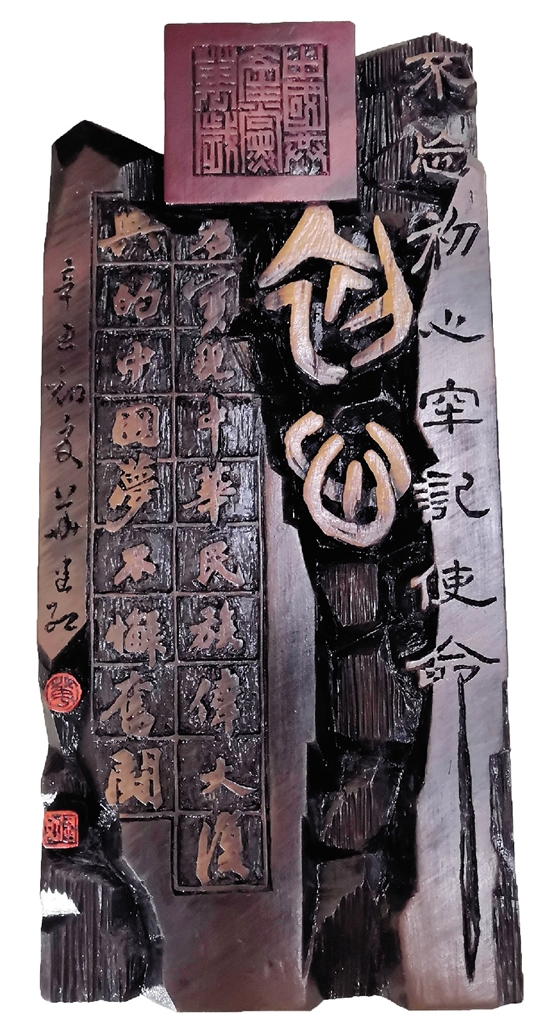 中國共
產黨
萬歲
不忘初心牢記使命
初心
為實現中華民族偉大復
興的中國夢不懈奮鬥
辛丑初夏